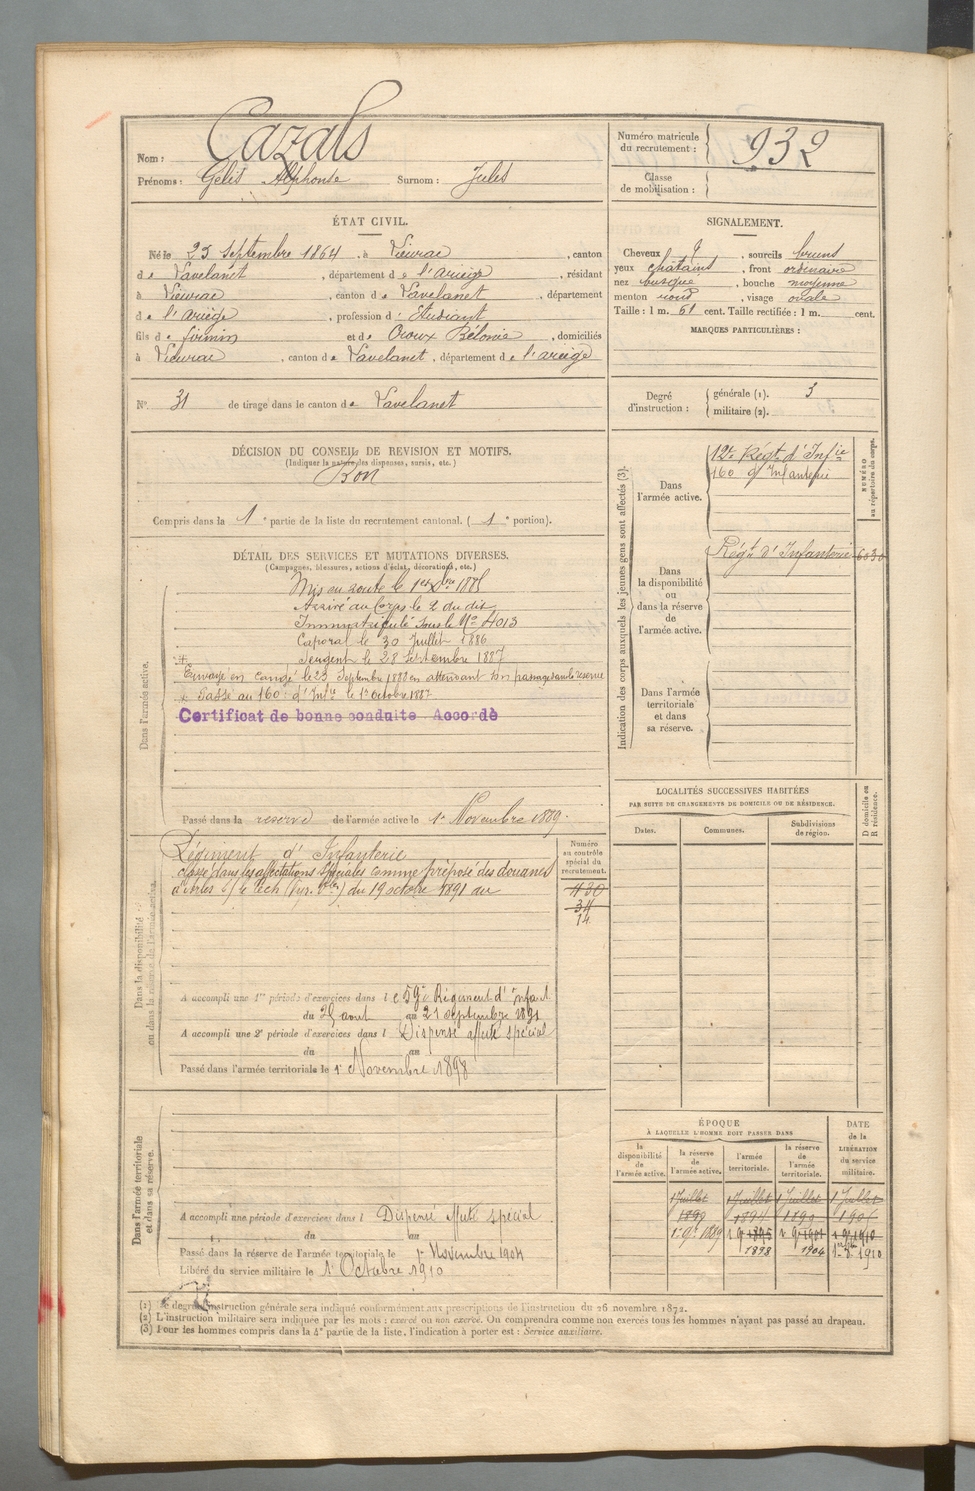 Nom : Cazals
Prénoms : Gélis Alphonse Surnom : Jules
Numéro matricule du recrutement : 932
Classe de mobilisation :
ÉTAT CIVIL.
Né le 23 Septembre 1864, à Vieurac, canton
de Lavelanet, département de l'ariège, résidant
à Vieurac, canton de Lavelanet, département
de l'ariège, profession d' Etudiant
fils de firmin et de Croux Mélonie, domiciliés
à Vieurac, canton de Lavelanet, département de l'ariège
SIGNALEMENT.
Cheveux, sourcils bruns
yeux châtains, front ordinaire
nez busqué, bouche moyenne
menton rond, visage ovale
Taille : 1 m. 61 cent. Taille rectifiée : 1 m. cent.
MARQUES PARTICULIÈRES :
No. 31 de tirage dans le canton de Lavelanet
Degré d'instruction : générale (1). 3
militaire (2).
DÉCISION DU CONSEIL DE REVISION ET MOTIFS.
(Indiquer la nature des dispenses, sursis, etc.)
Bon
Compris dans la 1e partie de la liste du recrutement cantonal. (1e portion).
DÉTAIL DES SERVICES ET MUTATIONS DIVERSES.
(Campagnes, blessures, actions d'éclat, décorations, etc.)
Dans l'armée active.
Mis en route le 1er Xbre 1885
Arrivé au Corps le 2 du dit
Immatriculé sous le No 4013
Caporal le 30 Juillet 1886
Sergent le 28 Septembre 1887
Envoyé en congé le 23 Septembre 1888 en attendant son passage dans la réserve
+ Passé au 160e d'Infie le 1er Octobre 1887
Certificat de bonne conduite Accordé
Passé dans la réserve de l'armée active le 1er Novembre 1889.
Indication des corps auxquels les jeunes gens sont affectés (3).
NUMÉRO au répertoire du corps.
Dans l'armée active.
12e Régt d'Infie
160 d'Infanterie
Dans la disponibilité ou dans la réserve de l'armée active.
Régt d'Infanterie 6030
Dans l'armée territoriale et dans sa réserve.
LOCALITÉS SUCCESSIVES HABITÉES
PAR SUITE DE CHANGEMENTS DE DOMICILE OU DE RÉSIDENCE.
Dates. Communes. Subdivisions de région.
D domicile ou R résidence.
Dans la disponibilité ou dans la réserve de l'armée active.
Numéro au contrôle spécial du recrutement.
Régiment d'Infanterie
classé dans les affectations spéciales comme préposé des douanes
d'Arles s/ le tech (Pyr. Ories) du 19 octobre 1891 au
430
34
14
A accompli une 1re période d'exercices dans le 59e Régiment d'Infant.
du 25 août au 21 septembre 1891
A accompli une 2e période d'exercices dans l Dispensé affecté spécial
du au
Passé dans l'armée territoriale le 1er Novembre 1898
Dans l'armée territoriale et dans sa réserve.
A accompli une période d'exercices dans l Dispensé affecté spécial
du au
Passé dans la réserve de l'armée territoriale le 1er Novembre 1904
Libéré du service militaire le 1er Octobre 1910
ÉPOQUE
À LAQUELLE L'HOMME DOIT PASSER DANS
la disponibilité de l'armée active.
la réserve de l'armée active.
l'armée territoriale.
la réserve de l'armée territoriale.
DATE de la LIBÉRATION du service militaire.
1 Juillet 1 Juillet 1 Juillet 1 Juillet
1er 9bre 1889 1 9 1895 1 9 1901 1 9 1910
1898 1904 1910
(1) Le degré d'instruction générale sera indiqué conformément aux prescriptions de l'instruction du 26 novembre 1872.
(2) L'instruction militaire sera indiquée par les mots : exercé ou non exercé. On comprendra comme non exercés tous les hommes n'ayant pas passé au drapeau.
(3) Pour les hommes compris dans la 4e partie de la liste, l'indication à porter est : Service auxiliaire.